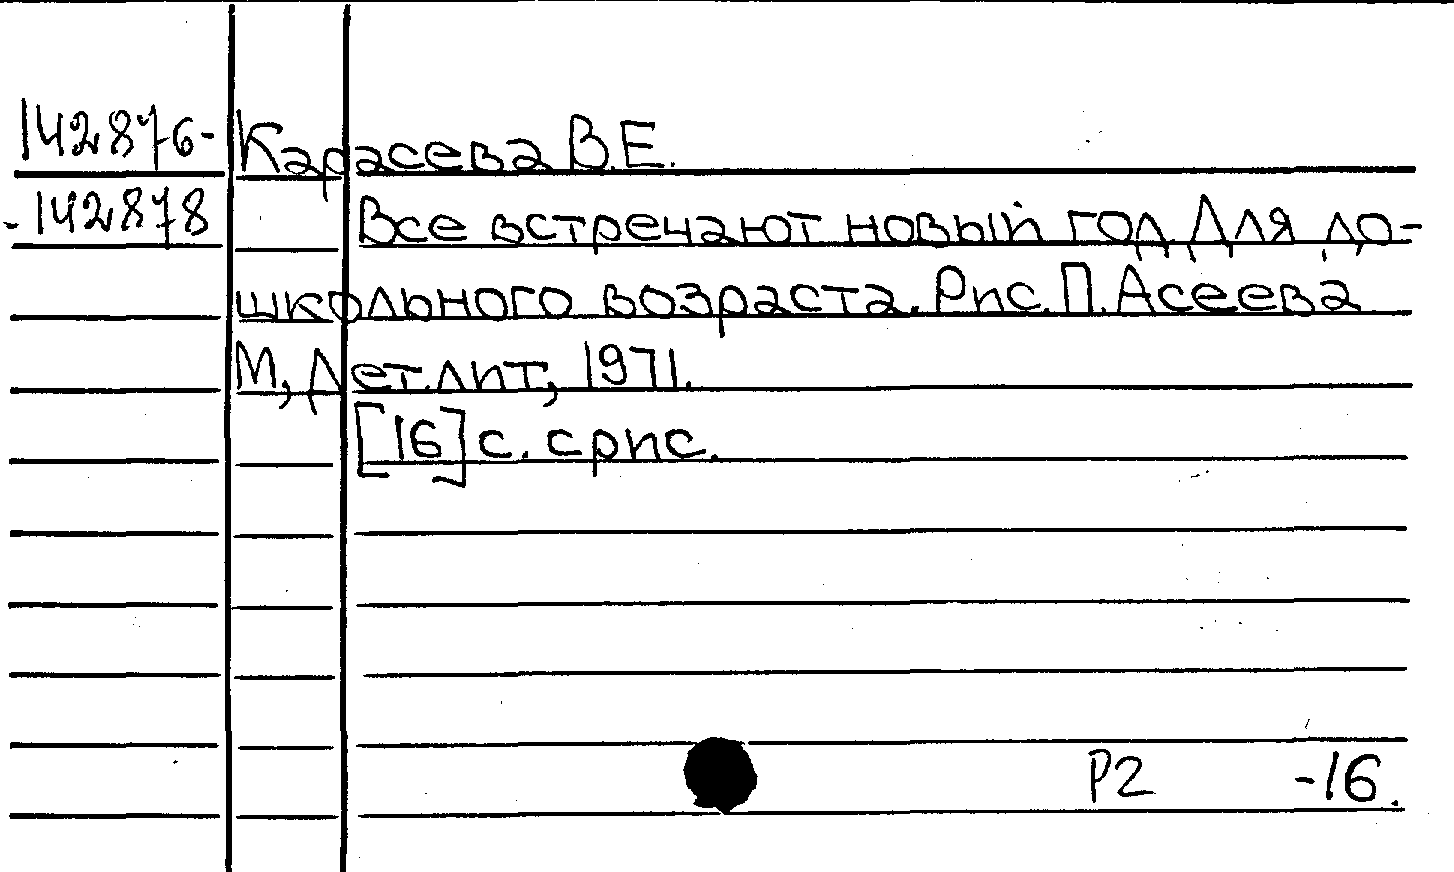 142876- Карасева В.Е.
-142878 Все встречают новый год Для до-
школьного возраста. Рис. П. Асеева
М, Дет. лит, 1971.
[16] с. с рис.
Р2 -16.